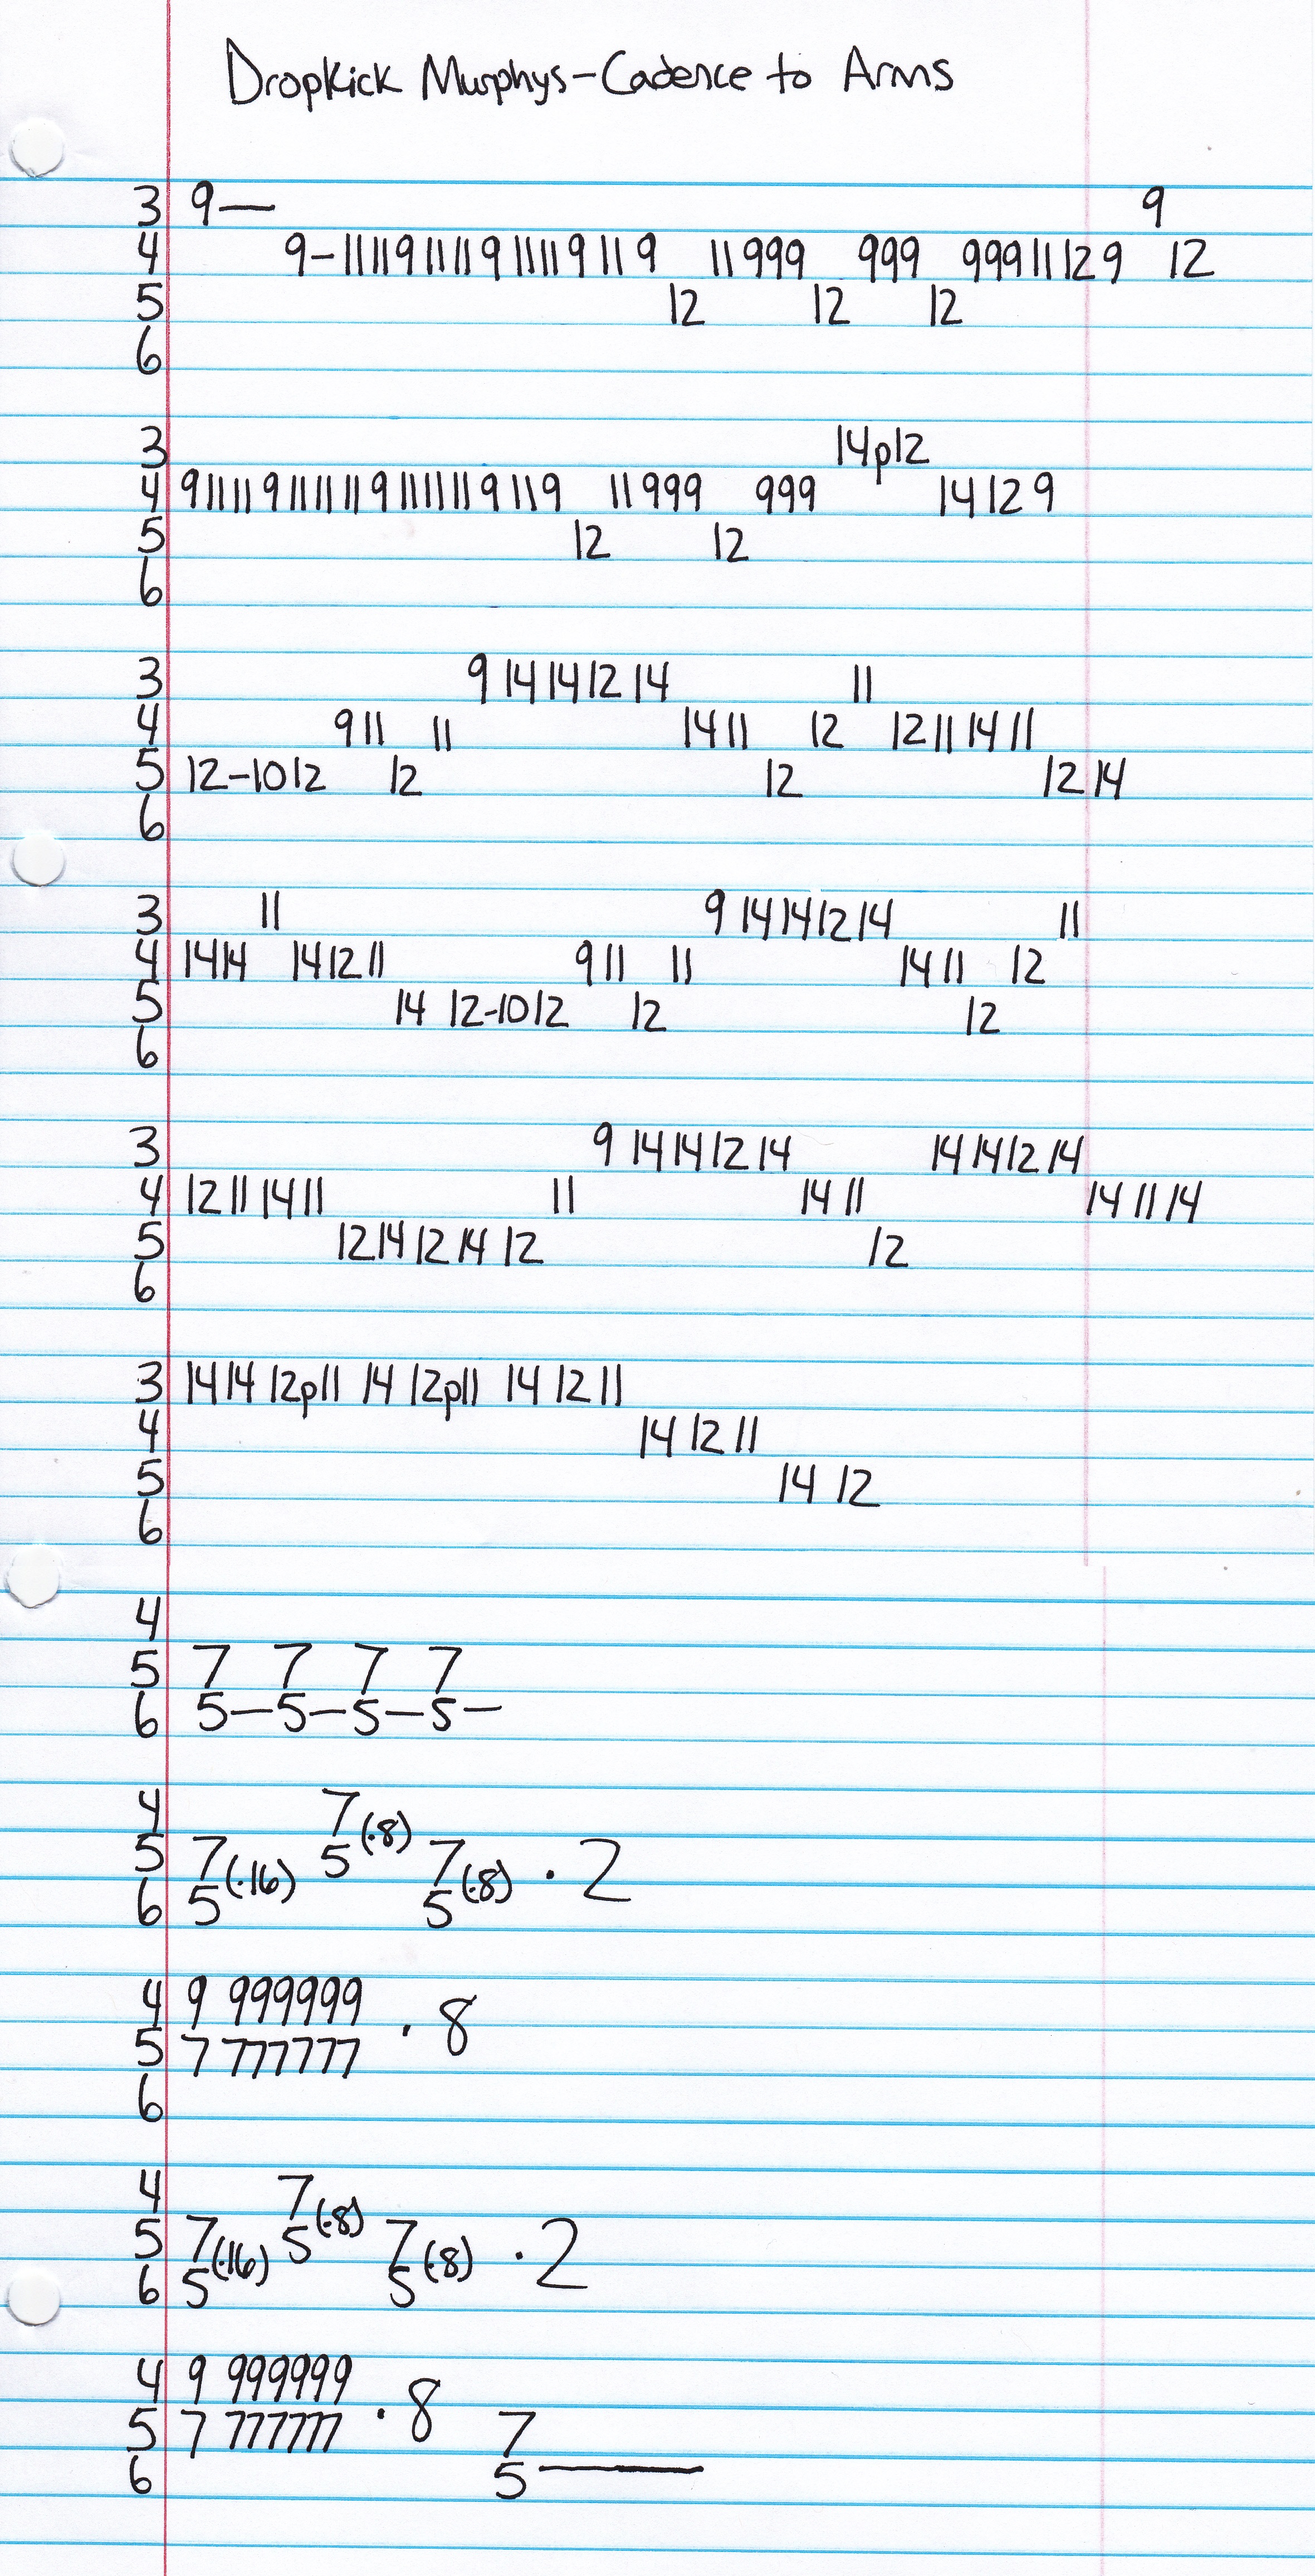 Dropkick Murphys-Cadence to Arms
3 9— 9
4 9-11119 11119 11119 119 11999 999 9991112 9 12
5 12 12 12
6
3 14p12
4 911119 1111119 1111119 119 11999 999 14129
5 12 12
6
3 9 14 14 12 14 11
4 9 11 11 14 11 12 12 11 14 11
5 12-10 12 12 12 12 14
6
3 11 9 14 14 12 14 11
4 14 14 14 12 11 9 11 11 14 11 12
5 14 12-10 12 12 12
6
3 9 14 14 12 14 14 14 12 14
4 12 11 14 11 11 14 11 14 11 14
5 12 14 12 14 12 12
6
3 14 14 12p11 14 12p11 14 12 11
4 14 12 11
5 14 12
6
4
5 7 7 7 7
6 5—5—5—5—
4 7
5 7(·16) 5(·8) 7(·8) · 2
6 5 5
4 9 999999
5 7 777777 · 8
6
4 7
5 7(·16) 5(·8) 7(·8) · 2
6 5 5
4 9 999999
5 7 777777 · 8 7
6 5——